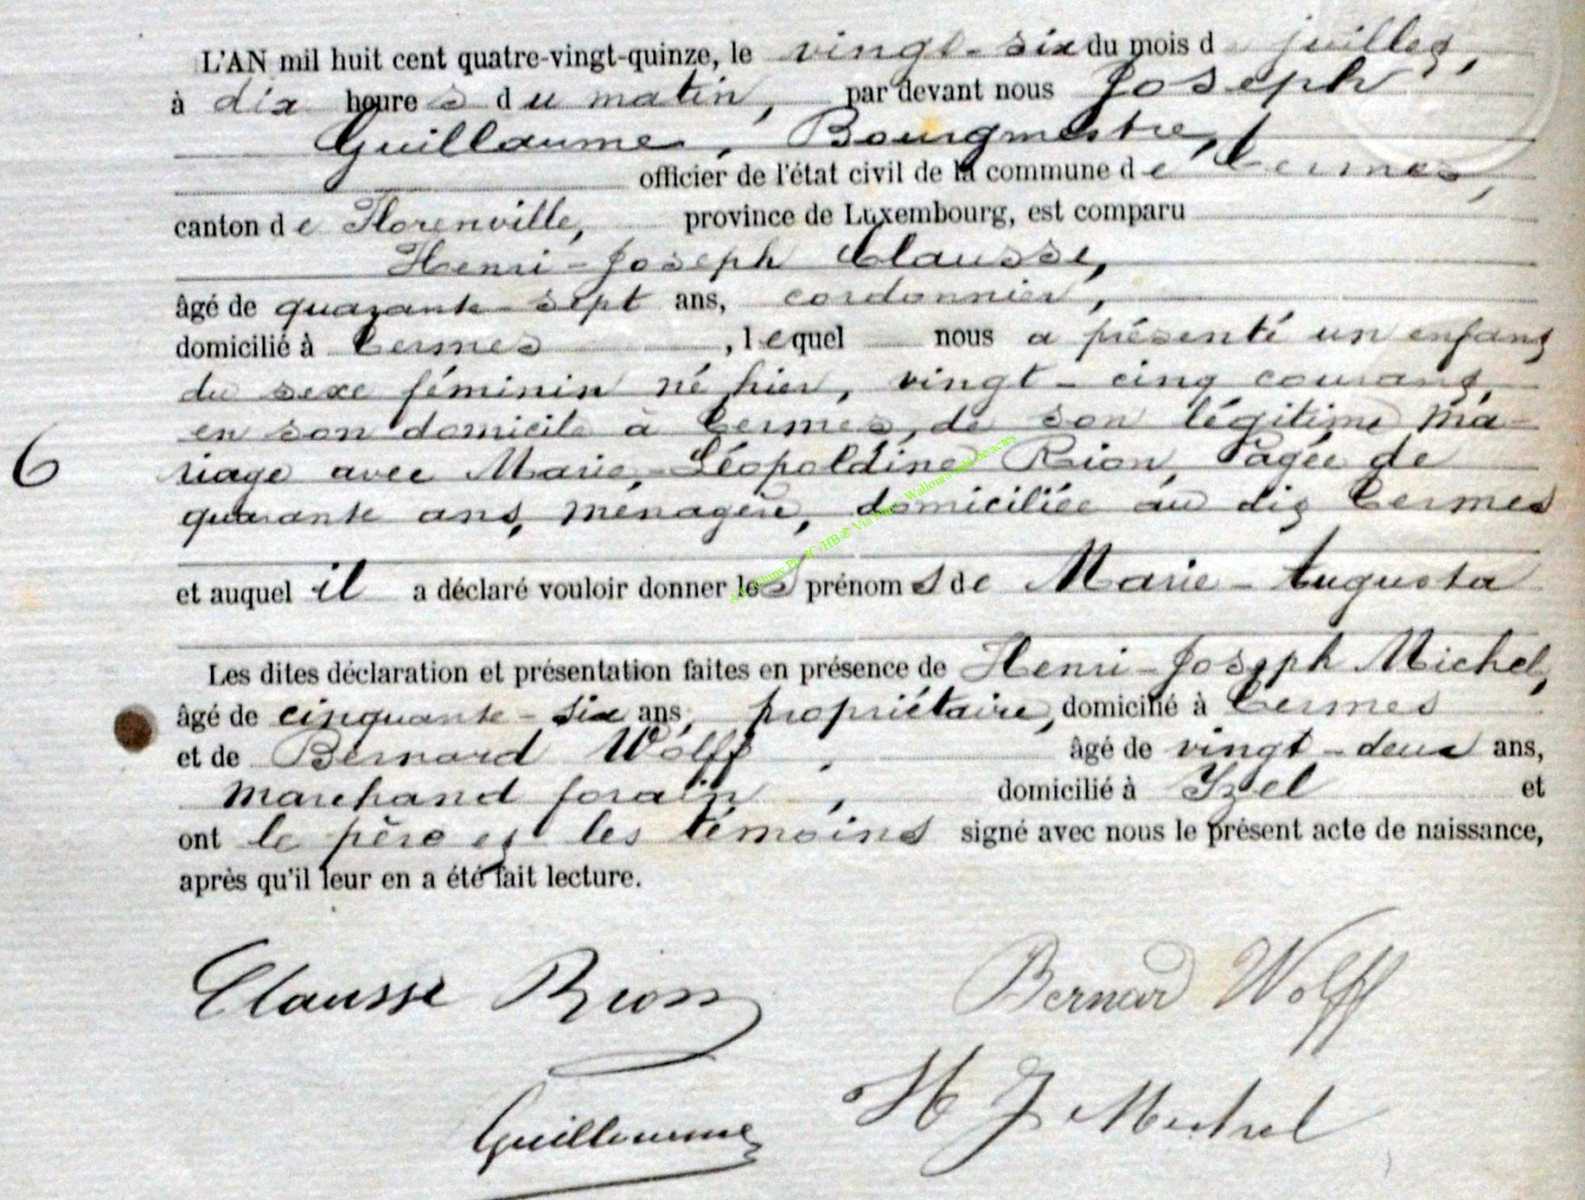 L'AN mil huit cent quatre-vingt-quinze, le vingt-six du mois de juillet,
à dix heures du matin, par devant nous Joseph
Guillaume, Bourgmestre,
officier de l'état civil de la commune de Termes,
canton de Florenville, province de Luxembourg, est comparu
Henri-Joseph Clausse,
âgé de quarante-sept ans, cordonnier,
domicilié à Termes, lequel nous a présenté un enfant
du sexe féminin né hier, vingt-cinq courant,
en son domicile à Termes, de son légitime ma-
riage avec Marie-Léopoldine Rion, âgée de
quarante ans, ménagère, domiciliée au dit Termes
et auquel il a déclaré vouloir donner les prénoms de Marie-Augusta
Les dites déclaration et présentation faites en présence de Henri-Joseph Michel,
6
âgé de cinquante-six ans, propriétaire, domicilié à Termes
et de Bernard Wolff, âgé de vingt-deux ans,
marchand forain, domicilié à Izel et
ont le père et les témoins signé avec nous le présent acte de naissance,
après qu'il leur en a été fait lecture.
Clausse Rion Bernard Wolff
Guillaume H J Michel